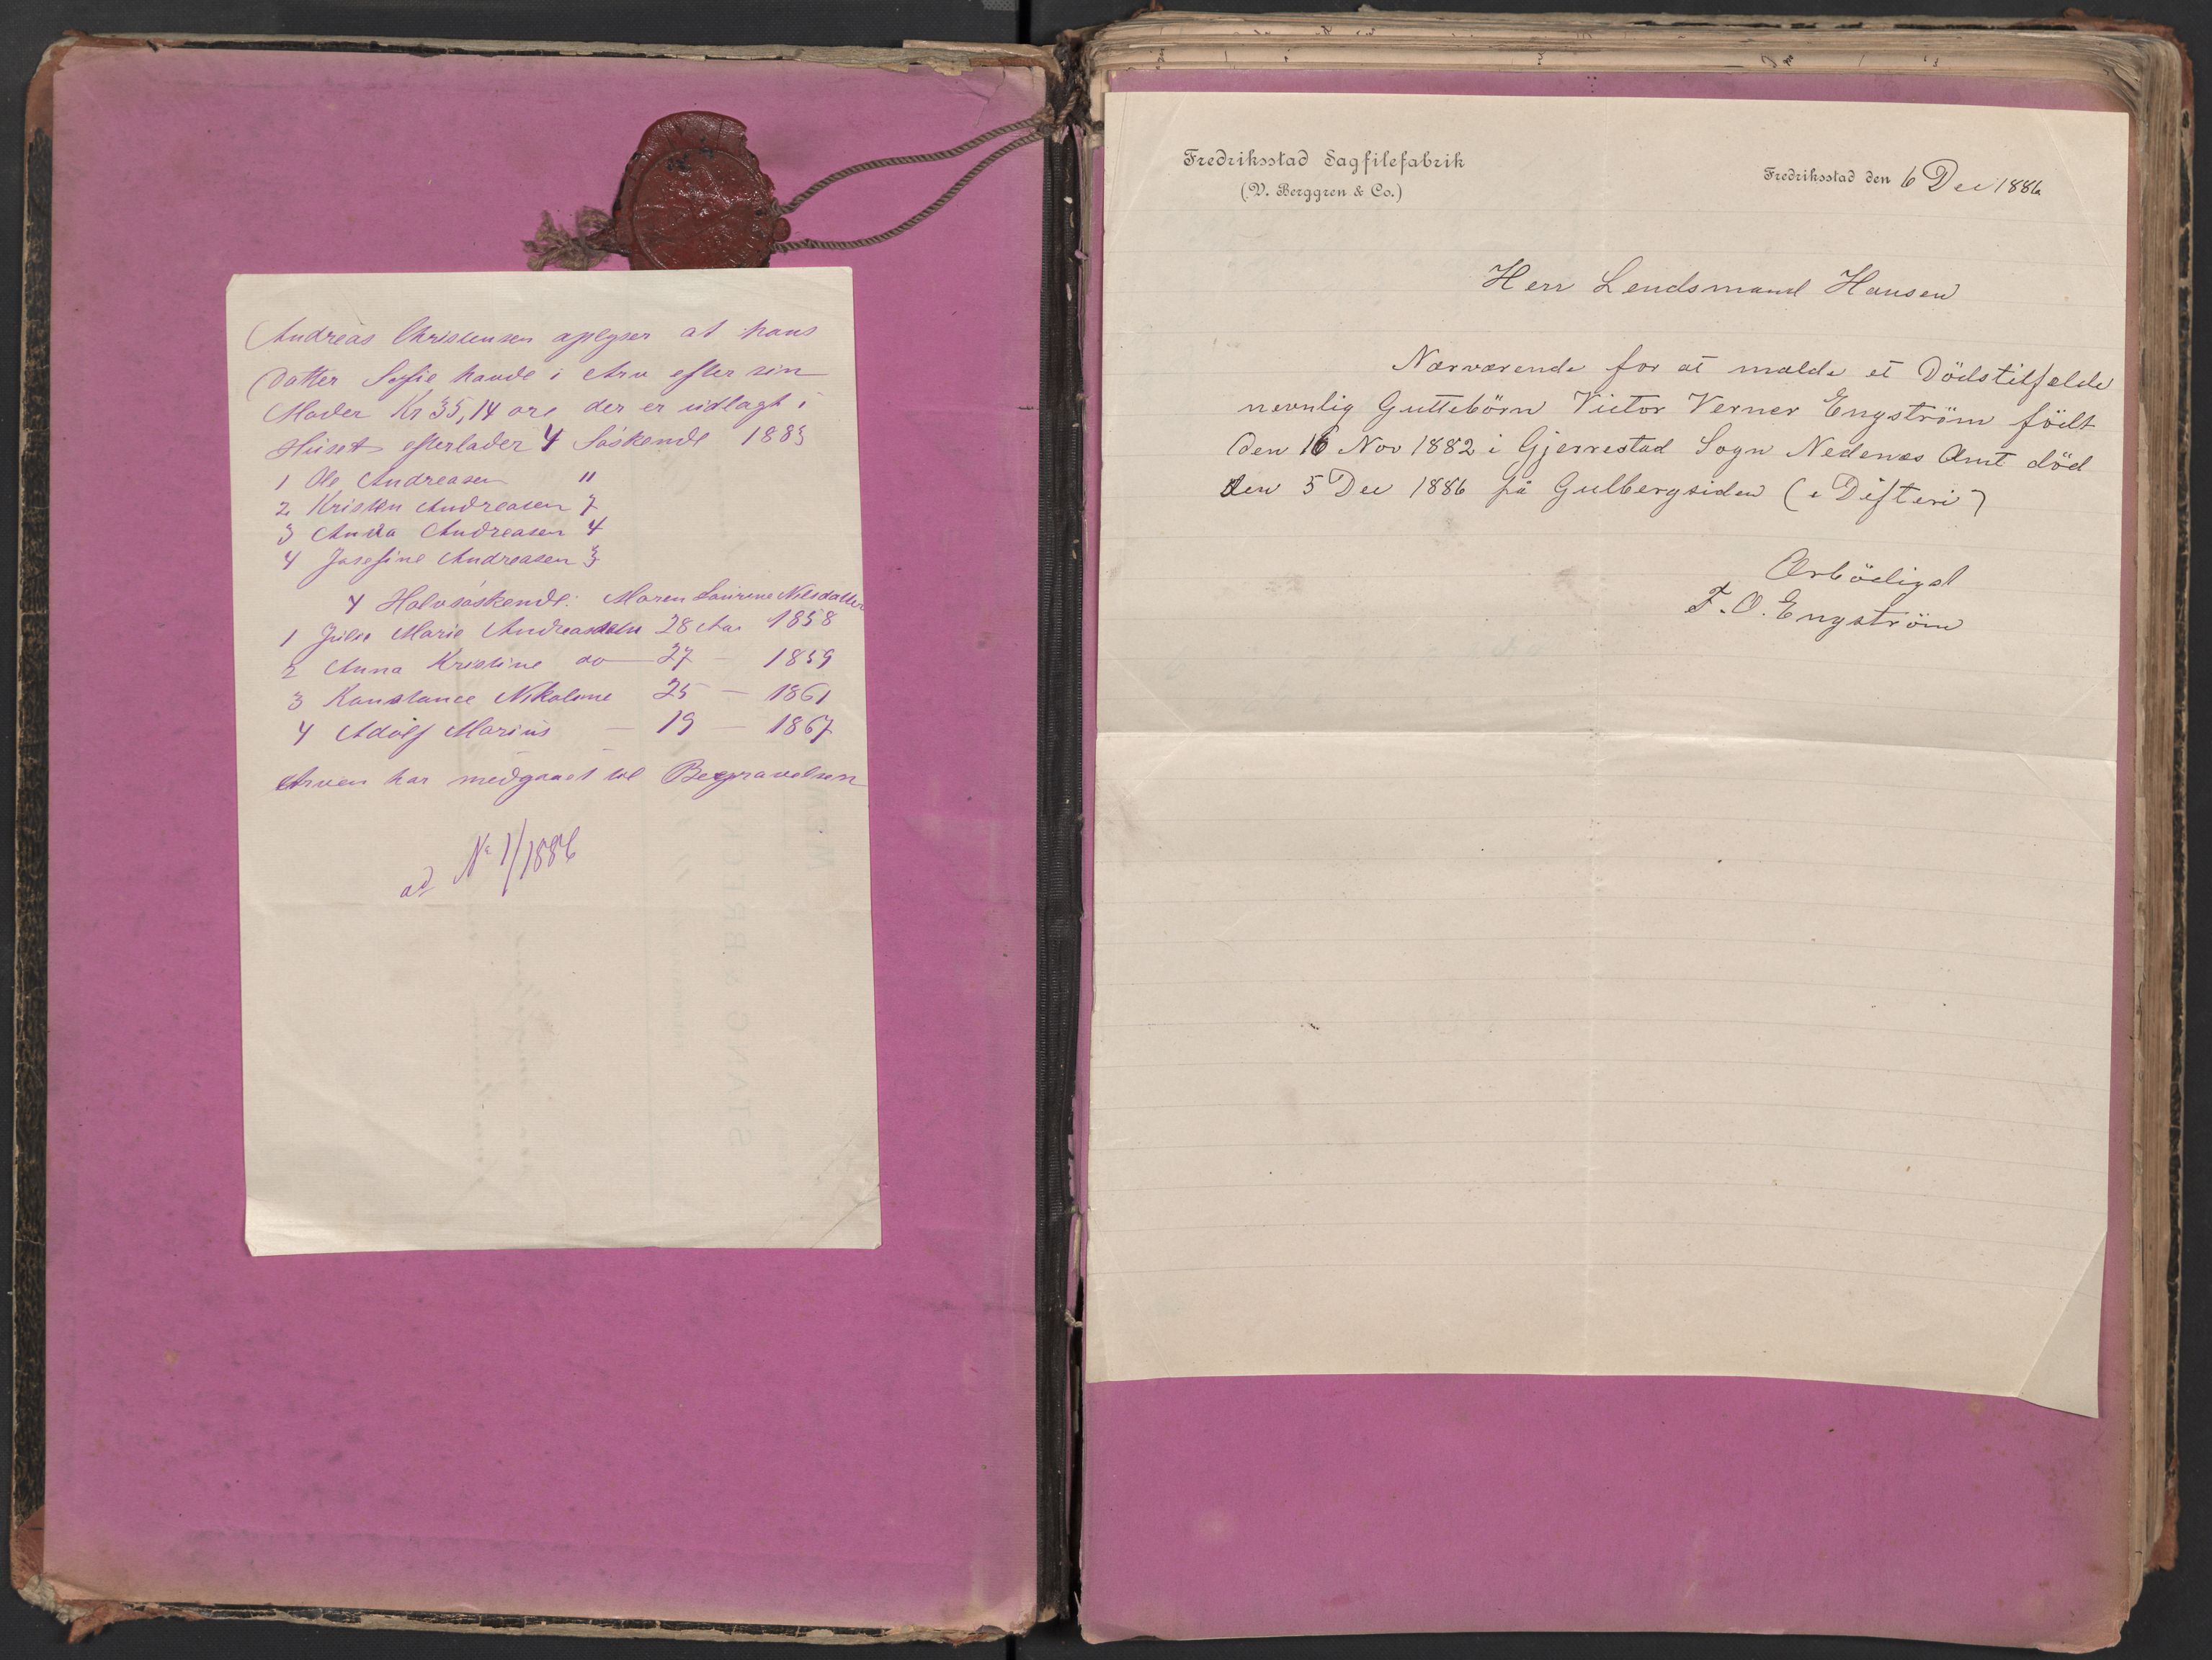 Andreas Christensen oplyser at hans
Datter Sofie havde i Arv efter sin
Moder Kr 35,14 øre der er udlagt i
Huset efterlader 4 Søskende 1883
1 Ole Andreasen 11
2 Kristen Andreasen 7
3 Anna Andreasen 4
4 Josefine Andreasen 3
4 Halvsøskende: Maren Laurine Nilsdatter
1 Julie Marie Andreasdatter 28 Aar 1858
2 Anna Kristine do 27 – 1859
3 Konstance Nikoline 25 – 1861
4 Adolf Marius – 19 – 1867
Arven har medgaaet til Begravelsen
ad No 1/1886
Fredriksstad Sagfilefabrik
(V. Berggren & Co.)
Fredriksstad den 6 Dec 1886
Herr Lendsmand Hansen
Nærværende for at mælde et Dödstilfælde
nevnlig Guttebörn Victor Verner Engström födt
den 16 Nov 1882 i Gjerrestad Sogn Nedenæs Amt död
den 5 Dec 1886 på Gulbergsiden (i Difteri)
Ærbödigst
F. O. Engström